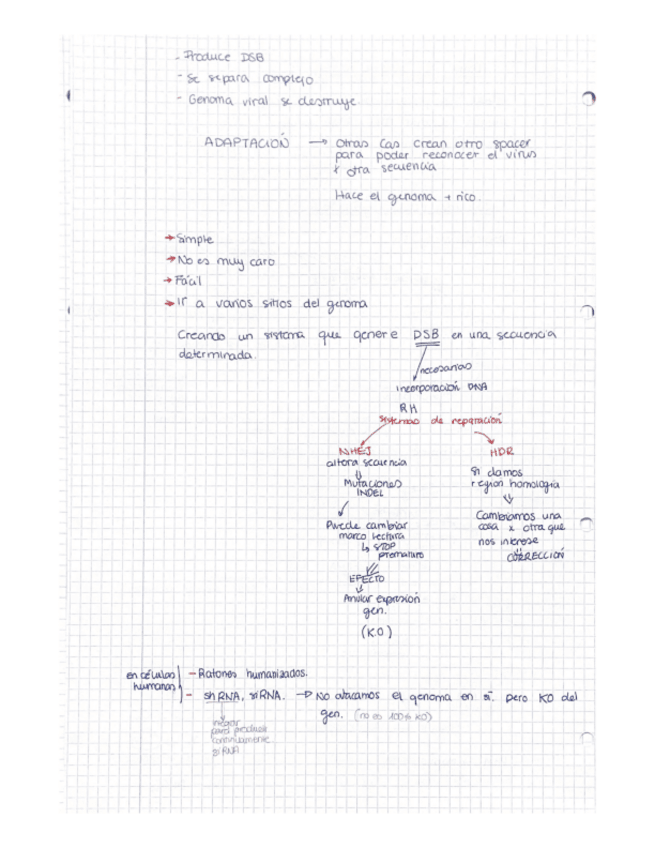 - Produce DSB
- Se separa complejo
- Genoma viral se destruye
ADAPTACIÓN → Otras Cas crean otro spacer
para poder reconocer el virus
x otra secuencia
Hace el genoma + rico.
→ Simple
→ No es muy caro
→ Fácil
→ Ir a varios sitios del genoma
Creando un sistema que genere DSB en una secuencia
determinada.
necesario
incorporación DNA
RH
sistemas de reparación
NHEJ
altera secuencia
Mutaciones
INDEL
Puede cambiar
marco lectura
↳ STOP
prematuro
EFECTO
Anular expresión
gen.
(KO)
HDR
Si damos
region homología
Cambiamos una
cosa x otra que
nos interese
CORRECCIÓN
en células
humanas
- Ratones humanizados.
- shRNA, siRNA. → No atacamos el genoma en sí. pero KO del
gen. (no es 100% KO)
producir
continuamente
siRNA